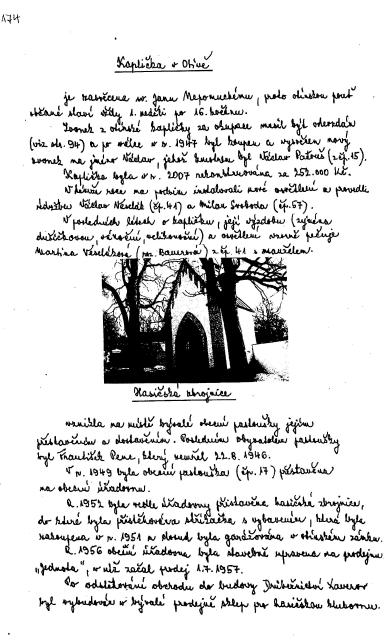 174
Kaplička v Olivě
je zasvěcena sv. Janu Nepomuckému, proto
občané slaví vždy 1. neděli po 16. květnu.
Zvonek z kapličky za okupace musel být odevzdán
(viz str. 94) a po válce v r. 1947 byl koupen a vysvěcen nový
zvonek na jméno Václav, jehož kmotrem byl Václav Patouš (z čp. 15).
Kaplička byla v r. 2007 rekonstruována za 252.000 Kč.
roce na podzim instalovali nové osvětlení a provedli
údržbu Václav (čp. 41) a Milan Svoboda (čp. 57).
V posledních létech o kapličku, její výzdobu (zejména
vánoční, velikonoční) a osvětlení vzorně pečuje
Martina (roz. Bauerová) z čp. 41 s manželem.
Hasičská zbrojnice
vznikla na místě bývalé obecní pastoušky jejím
přestavěním a dostavěním. Posledním obyvatelem pastoušky
byl František, který zemřel 22.8.1946.
V r. 1949 byla obecní pastouška (čp. 17) přestavěna
na obecní úřadovnu.
R. 1952 byla vedle úřadovny přistavěna hasičská zbrojnice,
do které byla přestěhována stříkačka s vybavením, která byla
zakoupena v r. 1951 a dosud byla garážována v zámku.
R. 1956 obecní úřadovna byla stavebně upravena na prodejnu
„Jednota", v níž začal prodej 1.7.1957.
Po odstěhování obchodu do budovy Drůbežnictví Xaverov
byl vybudován v bývalé prodejně sklep pro hasičskou klubovnu.